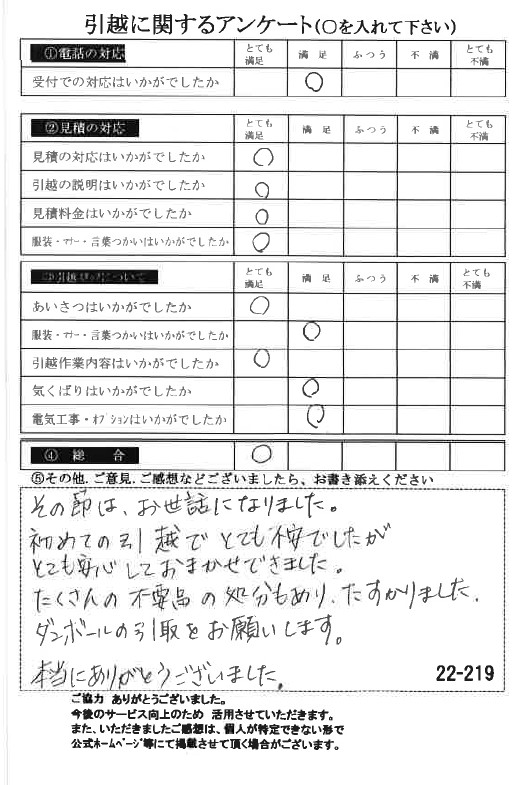 引越に関するアンケート(○を入れて下さい)
①電話の対応 とても満足 満足 ふつう 不満 とても不満
受付での対応はいかがでしたか ○
②見積の対応 とても満足 満足 ふつう 不満 とても不満
見積の対応はいかがでしたか ○
引越の説明はいかがでしたか ○
見積料金はいかがでしたか ○
服装・マナー・言葉つかいはいかがでしたか ○
③引越スタッフについて とても満足 満足 ふつう 不満 とても不満
あいさつはいかがでしたか ○
服装・マナー・言葉つかいはいかがでしたか ○
引越作業内容はいかがでしたか ○
気くばりはいかがでしたか ○
電気工事・オプションはいかがでしたか ○
④ 総合 ○
⑤その他、ご意見、ご感想などございましたら、お書き添えください
その節は、お世話になりました。
初めての引越でとても不安でしたが
とても安心しておまかせできました。
たくさんの不要品の処分もあり、たすかりました。
ダンボールの引取をお願いします。
本当にありがとうございました。
22-219
ご協力 ありがとうございました。
今後のサービス向上のため 活用させていただきます。
また、いただきましたご感想は、個人が特定できない形で
公式ホームページ等にて掲載させて頂く場合がございます。